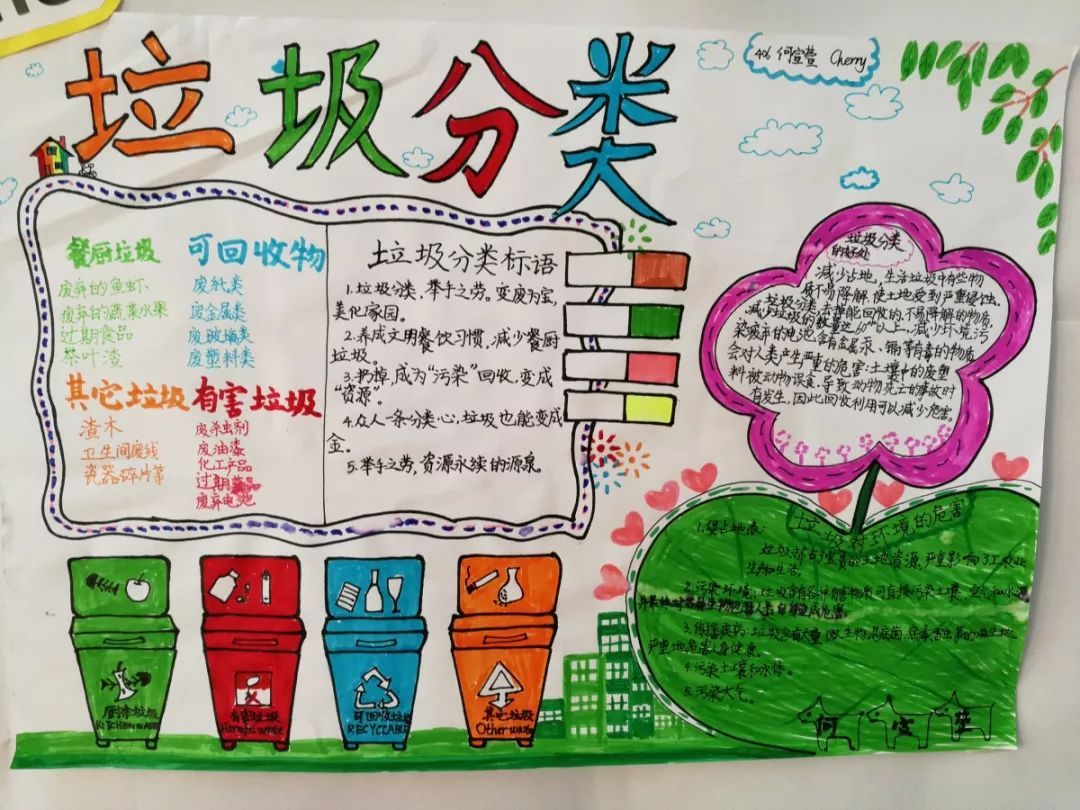 垃圾分类
406 何宣萱 Cherry
餐厨垃圾
废弃的鱼虾、
废弃的蔬菜水果
过期食品
茶叶渣
可回收物
废纸类
废金属类
废玻璃类
废塑料类
其它垃圾
渣木
卫生间废线
瓷器碎片等
有害垃圾
废杀虫剂
废油漆
化工产品
过期药品
废弃电池
垃圾分类标语
1.垃圾分类,举手之劳。变废为宝,
美化家园。
2.养成文明餐饮习惯,减少餐厨
垃圾。
3.扔掉,成为“污染”回收,变成
“资源”。
4.众人一条分类心,垃圾也能变成
金。
5.举手之劳,资源永续的源泉。
垃圾分类
的好处
减少占地,生活垃圾中有些物
质不易降解,使土地受到严重侵蚀。
垃圾分类,去掉能回收的,不易降解的物质,
减少垃圾的数量达60%以上,减少环境污
染废弃的电池含有金属汞、镉等有毒的物质,
会对人类产生严重的危害:土壤中的废塑
料被动物误食,导致动物死亡的事故时
有发生,因此回收利用可以减少危害。
垃圾对环境的危害
1.侵占地表:
生产和生活。
3.传播疾病:
严重地危害人身健康。
4.污染土壤和水体。
5.污染大气。
厨余垃圾
KITCHEN WASTE
有害垃圾
Harmful waste
可回收垃圾
RECYCLABLE
其它垃圾
Other waste
何宣萱